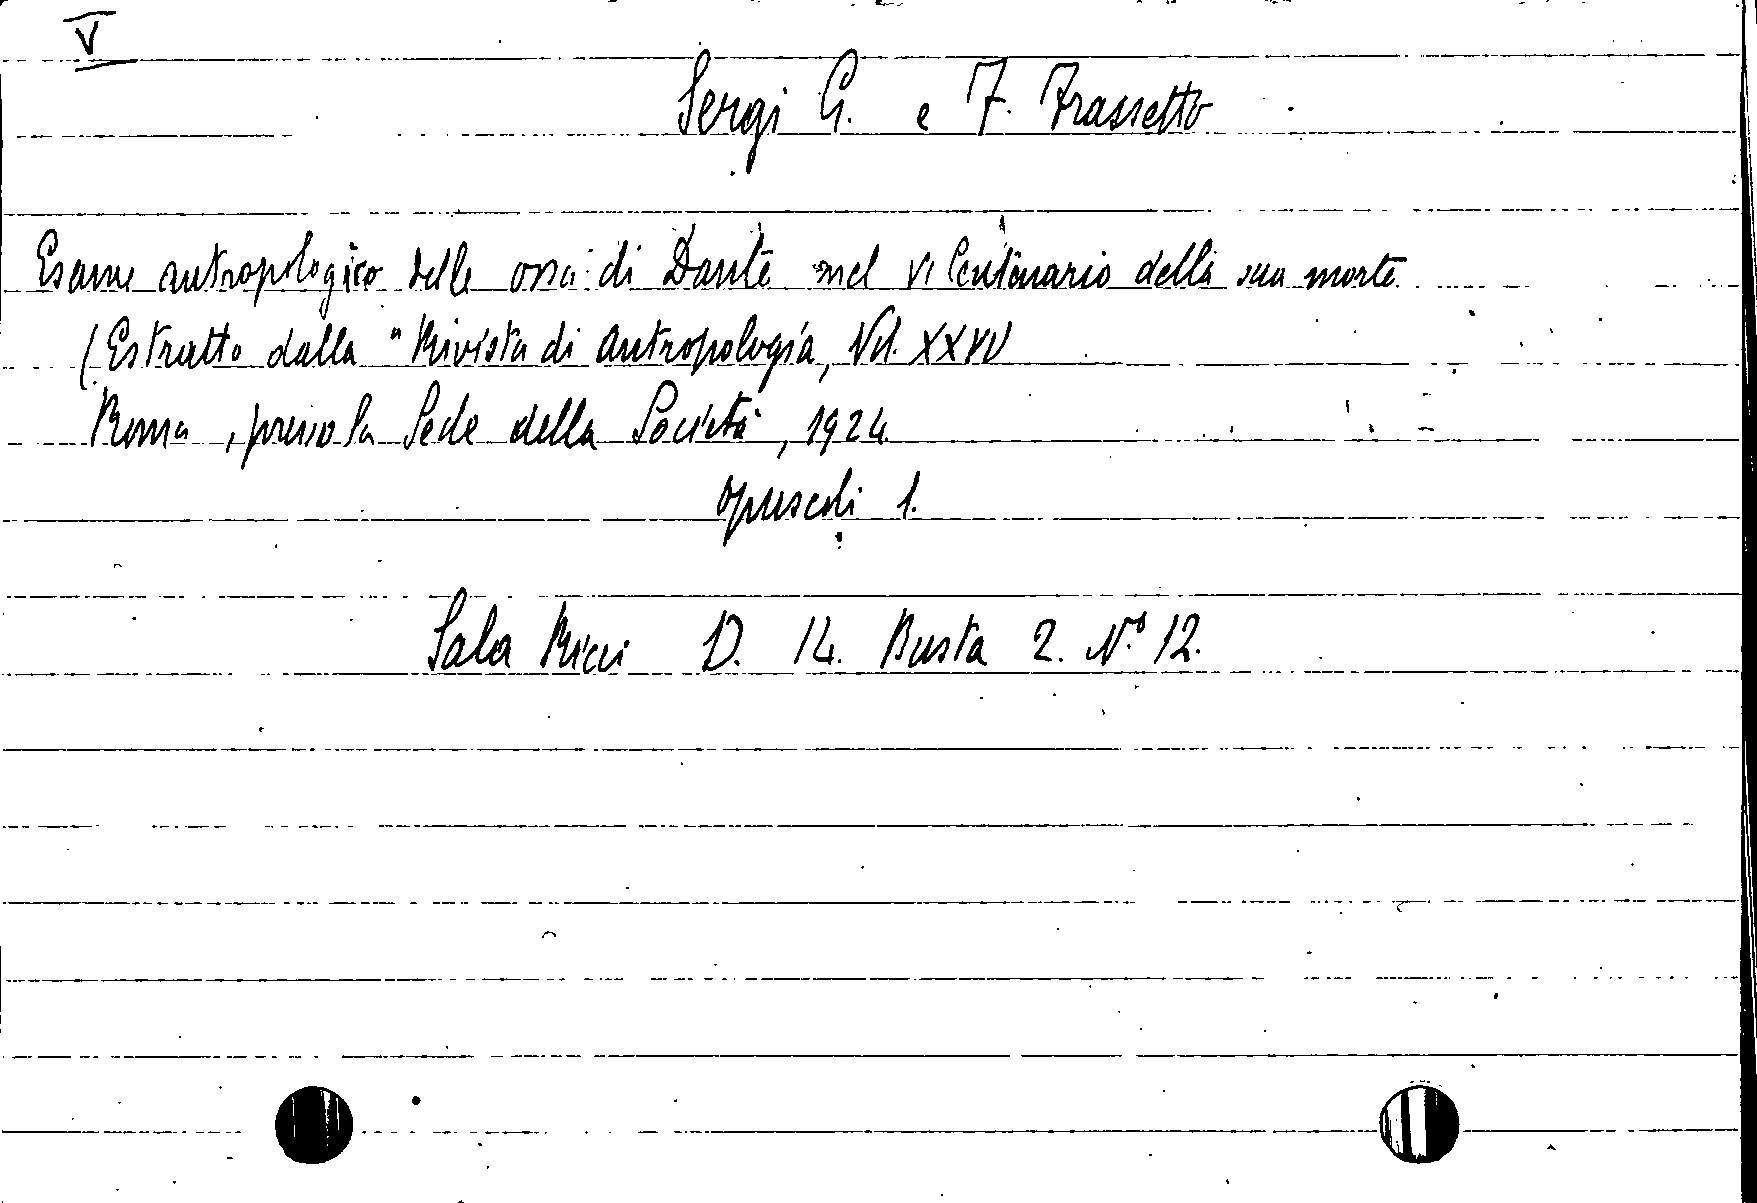 V
Sergi G. e F. Frassetto
Esame antropologico delle ossa di Dante nel VI Centenario della sua morte
(Estratto dalla "Rivista di Antropologia, Vol. XXVI
Roma, presso la Sede della Società, 1924
opuscoli 1.
Sala Ricci D. 14. Busta 2. N.º 12.